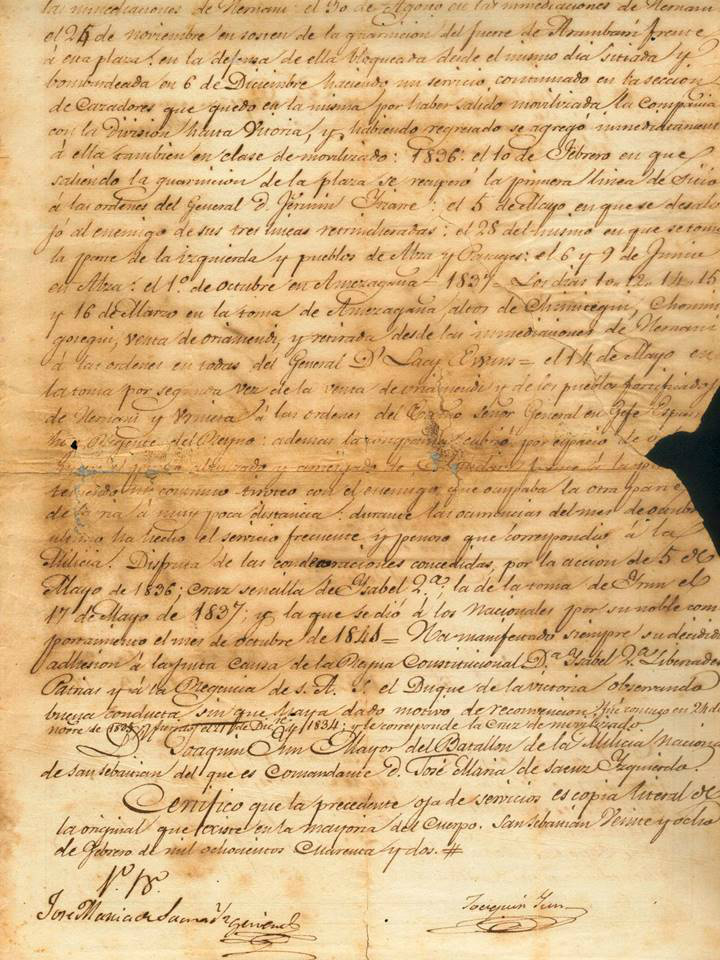 las inmediaciones de Hernani: el 30 de Agosto en las inmediaciones de Hernani
el 25 de noviembre en sosten de la guarnicion del fuerte de Arambarri frente
á esta plaza: en la defensa de ella bloqueada desde el mismo dia sitiada y
bombardeada en 6 de Diciembre haciendo un servicio continuado en la seccion
de Cazadores que quedo en la misma por haber salido movilizada la Compañia
con la Division hasta Vitoria, y habiendo regresado se agregó inmediatament
á ella tambien en clase de movilizado: 1836: el 10 de Febrero en que
saliendo la guarnicion de la plaza se recuperó la primera linea de sitio
á las ordenes del General D. Fermin Iriarte: el 5 de Mayo en que se desalo
jó al enemigo de sus tres lineas retrincheradas: el 28 del mismo en que se tomo
la parte de la izquierda y pueblos de Alza y Pasages: el 6 y 9 de Junio
en Alza: el 1º de octubre en Amezagaña = 1837 = Los dias 10, 12, 14, 15
y 16 de Marzo en la toma de Amezagaña altos de
venta de oriamendi, y retirada desde las inmediaciones de Hernani
á las ordenes en todas del General Dn Lacy Ewans = el 14 de Mayo en
la toma por segunda vez de la venta de oriamendi y de los pueblos fortificados
de Hernani y Urnieta á las ordenes del Señor General en Gefe
Regente del Reyno: ademas la compañia cubrió por espacio de
y
teniendo un continuo tiroteo con el enemigo que ocupaba la otra parte
de la ria á muy poca distancia: durante las ocurrencias del mes de octubre
ultimo ha hecho el servicio frecuente y penoso que correspondió á la
Milicia. Disfruta de las condecoraciones concedidas, por la accion de 5 de
Mayo de 1836; cruz sencilla de Ysabel 2ª, la de la toma de Yrun el
17 de Mayo de 1837; y la que se dió á los Nacionales por su noble com
portamiento el mes de octubre de 1841 = Ha manifestado siempre su decidida
adhesion á la justa causa de la Reyna Constitucional Dª Ysabel 2ª Libertades
Patrias y á la Regencia de S. A. S. el Duque de la victoria observando
buena conducta sin que haya dado motivo de reconvencion
y le corresponde la Cruz de movilizado.
Dn. Joaquin Yun Mayor del Batallon de la Milicia Naciona
de san sebastian del que es Comandante D. José Maria de saenz Yzquierdo.
Certifico que la precedente oja de servicios es copia literal de
la original que existe en la mayoria del Cuerpo. San Sebastian Veinte y ocho
de Febrero de mil ochocientos Cuarenta y dos. #
Vº Bº
José Maria de Saenz
Joaquin Yun